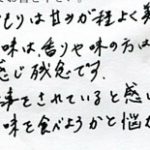 もりは甘みが程よく美
味は、香りや味の方は
感じ残念です.
事をされていると感い
味を食べようかと悩